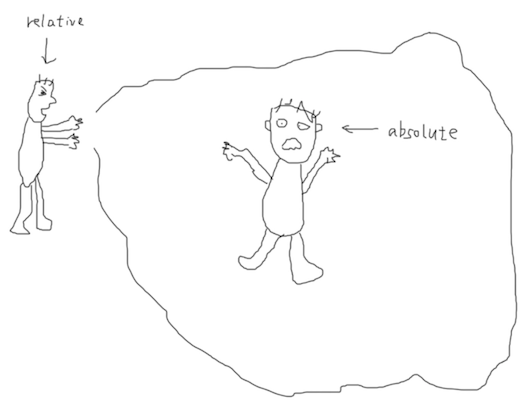 relative
absolute